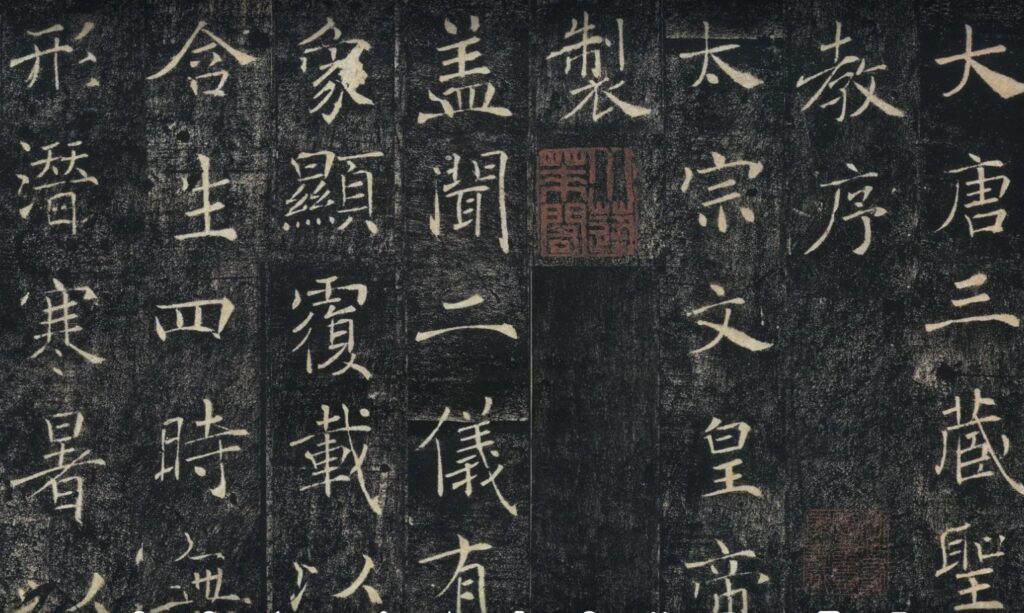 大唐三藏聖
教序
太宗文皇帝
製
小蓬莱閣
盖聞二儀有
象顯覆載以
含生四時無
形潛寒暑以